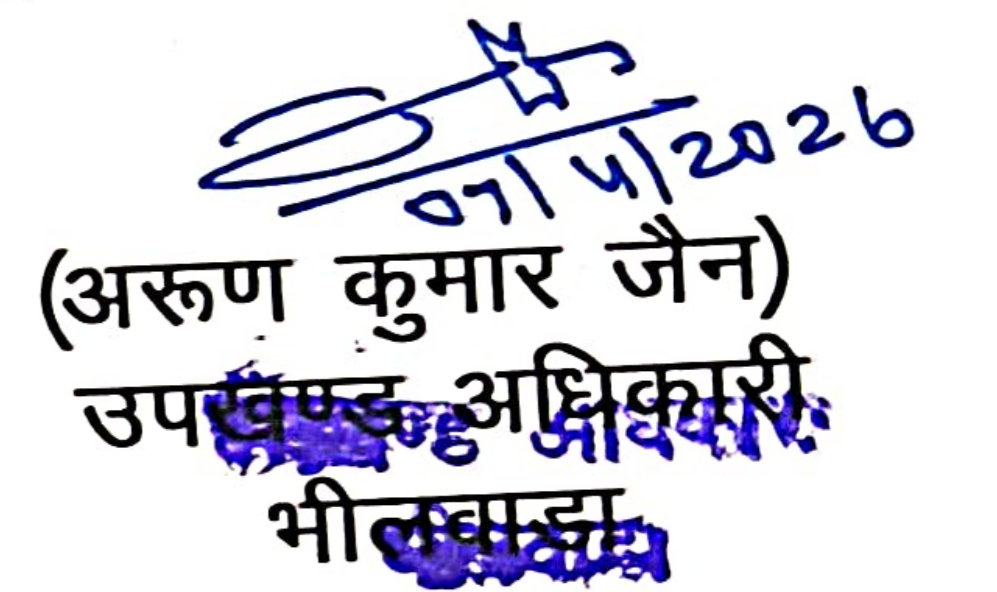 07/4/2026
(अरूण कुमार जैन)
उपखण्ड अधिकारी
भीलवाड़ा